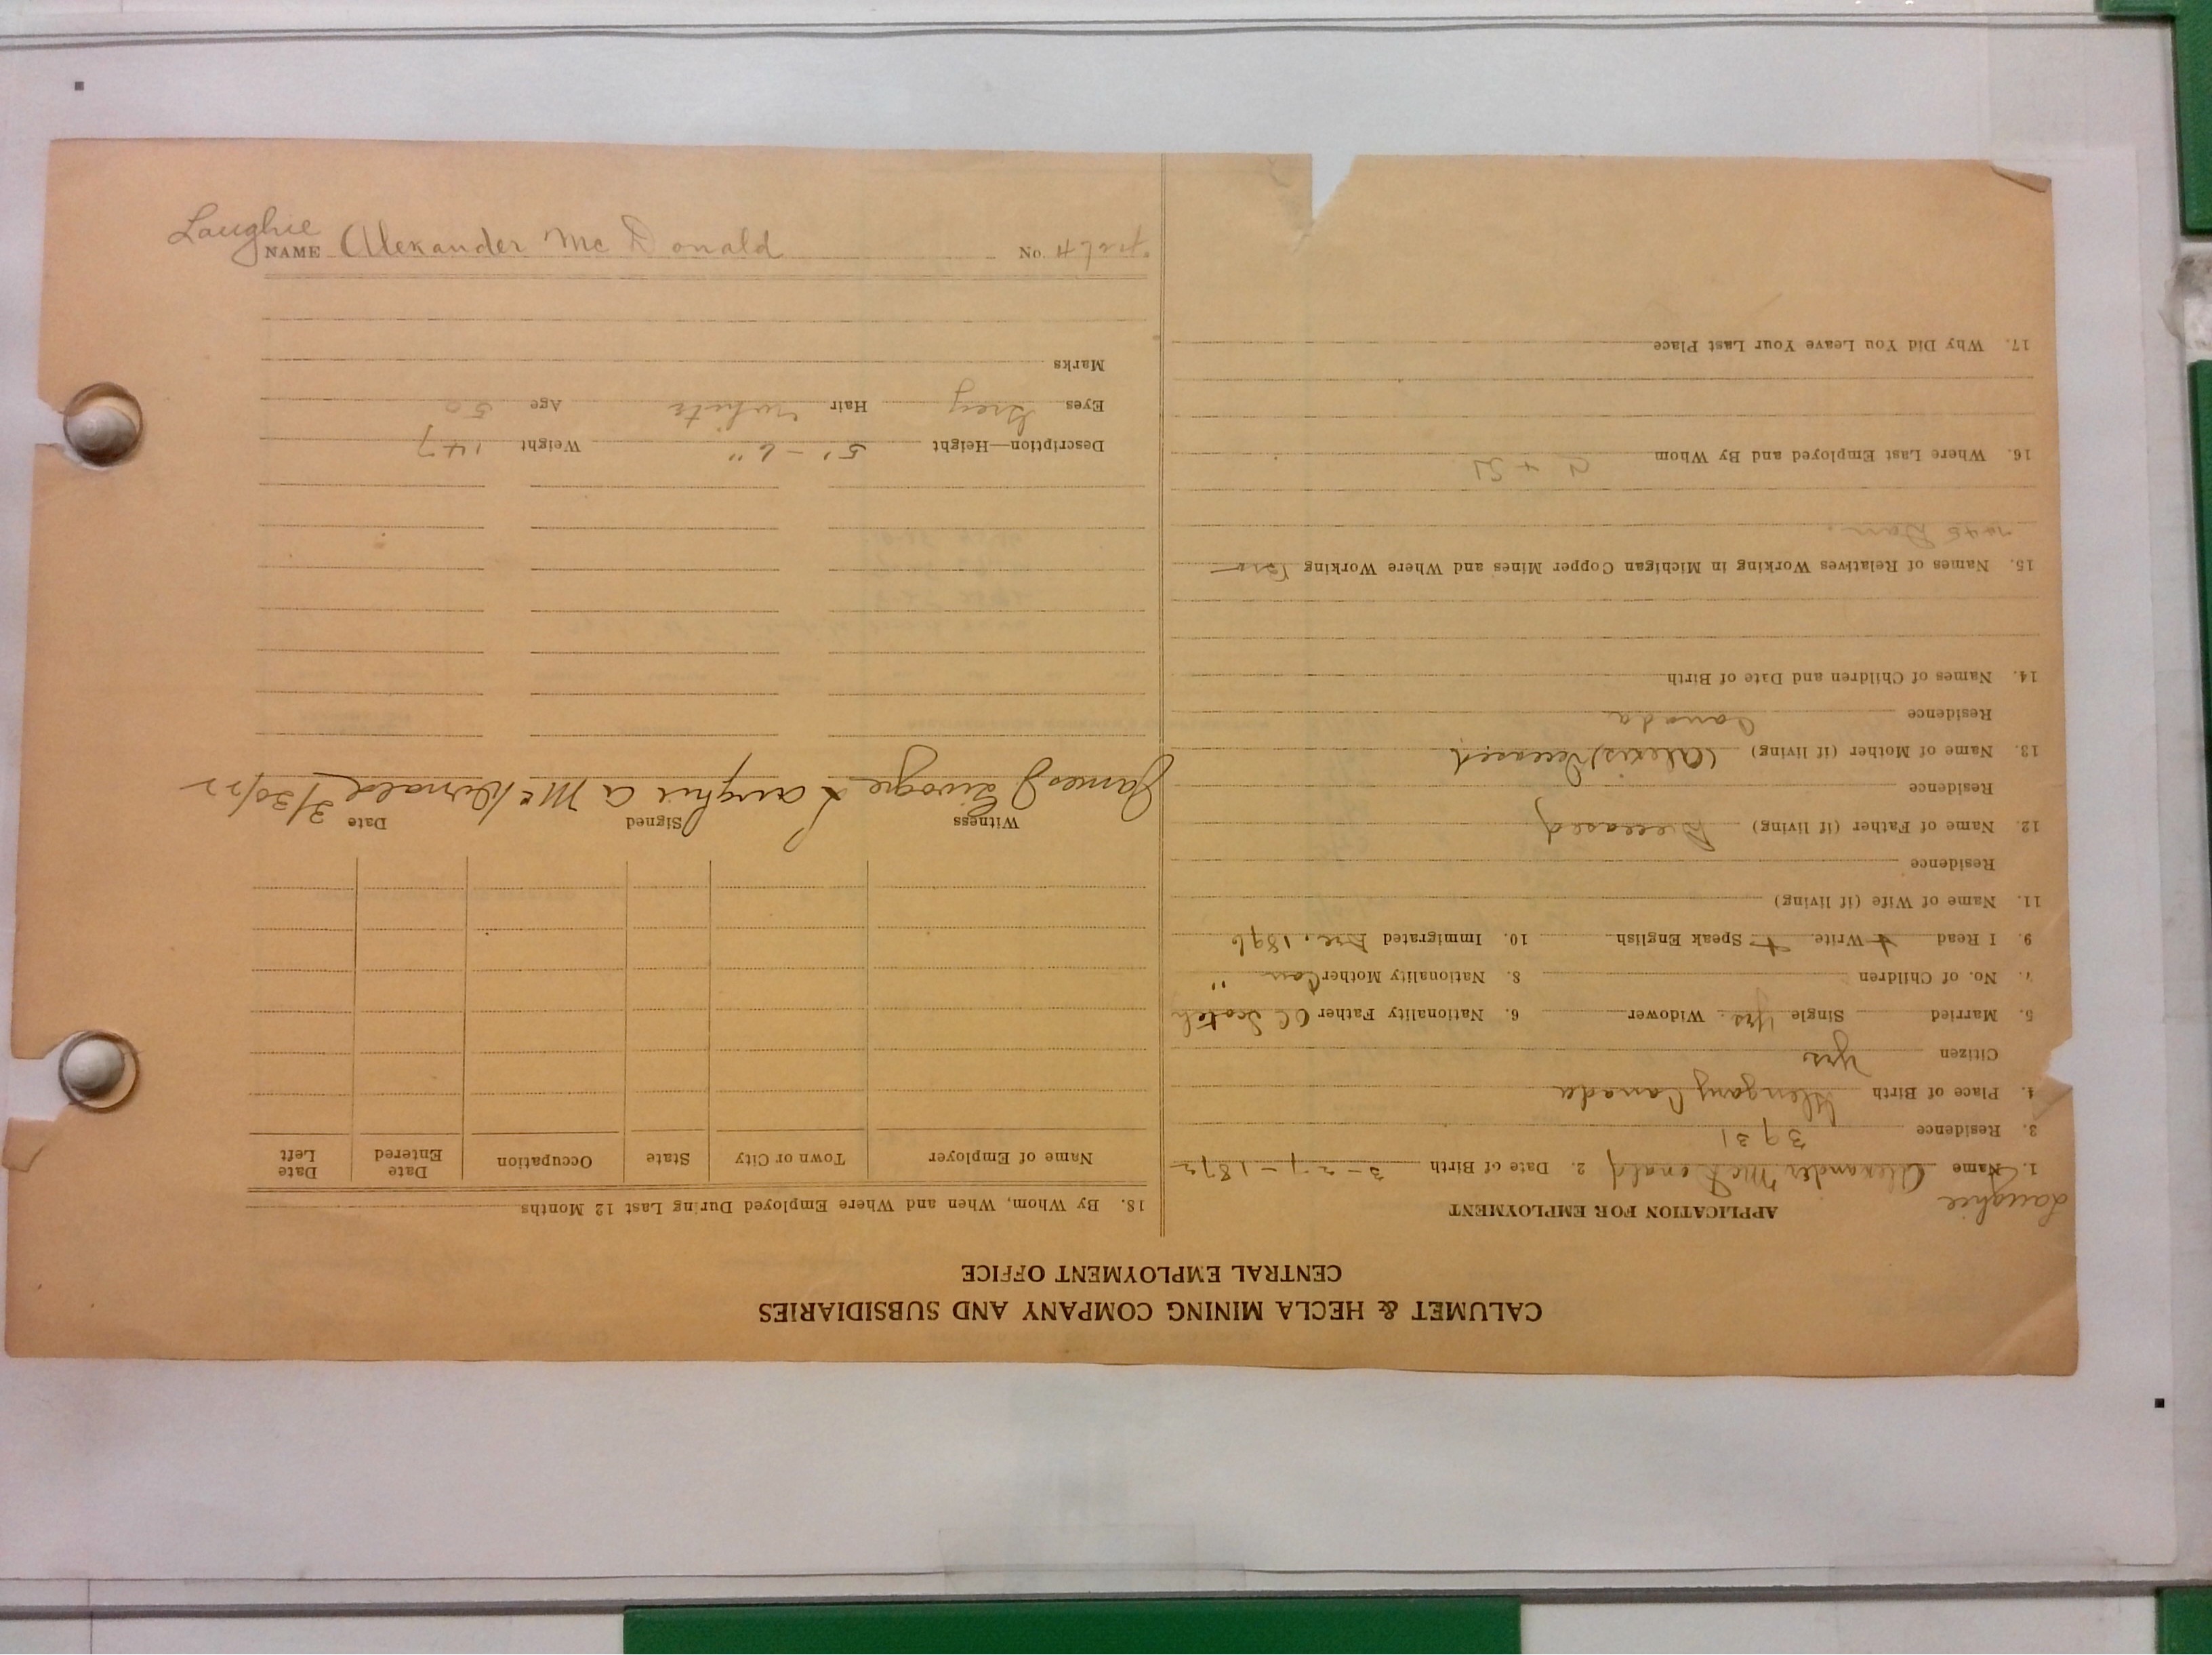 CALUMET & HECLA MINING COMPANY AND SUBSIDIARIES
CENTRAL EMPLOYMENT OFFICE
APPLICATION FOR EMPLOYMENT
Laughie
1. Name Alexander McDonald 2. Date of Birth 3-27-1872
3. Residence 3931
4. Place of Birth Glengary Canada
Citizen Yes
5. Married Single Yes. Widower 6. Nationality Father Scotch
7. No. of Children 8. Nationality Mother "
9. I Read Write Speak English 10. Immigrated Dec. 1896
11. Name of Wife (if living)
Residence
12. Name of Father (if living) Deceased
Residence
13. Name of Mother (if living) (Alexis) Deceased
Residence Canada
14. Names of Children and Date of Birth
15. Names of Relatives Working in Michigan Copper Mines and Where Working
16. Where Last Employed and By Whom C + H
17. Why Did You Leave Your Last Place
18. By Whom, When and Where Employed During Last 12 Months
Name of Employer Town or City State Occupation Date Entered Date Left
Witness Signed Date
James Laughie A McDonald 3/30/22
Description—Height 5'-6" Weight 147
Eyes Grey Hair White Age 50
Marks
Laughie
NAME Alexander McDonald No.